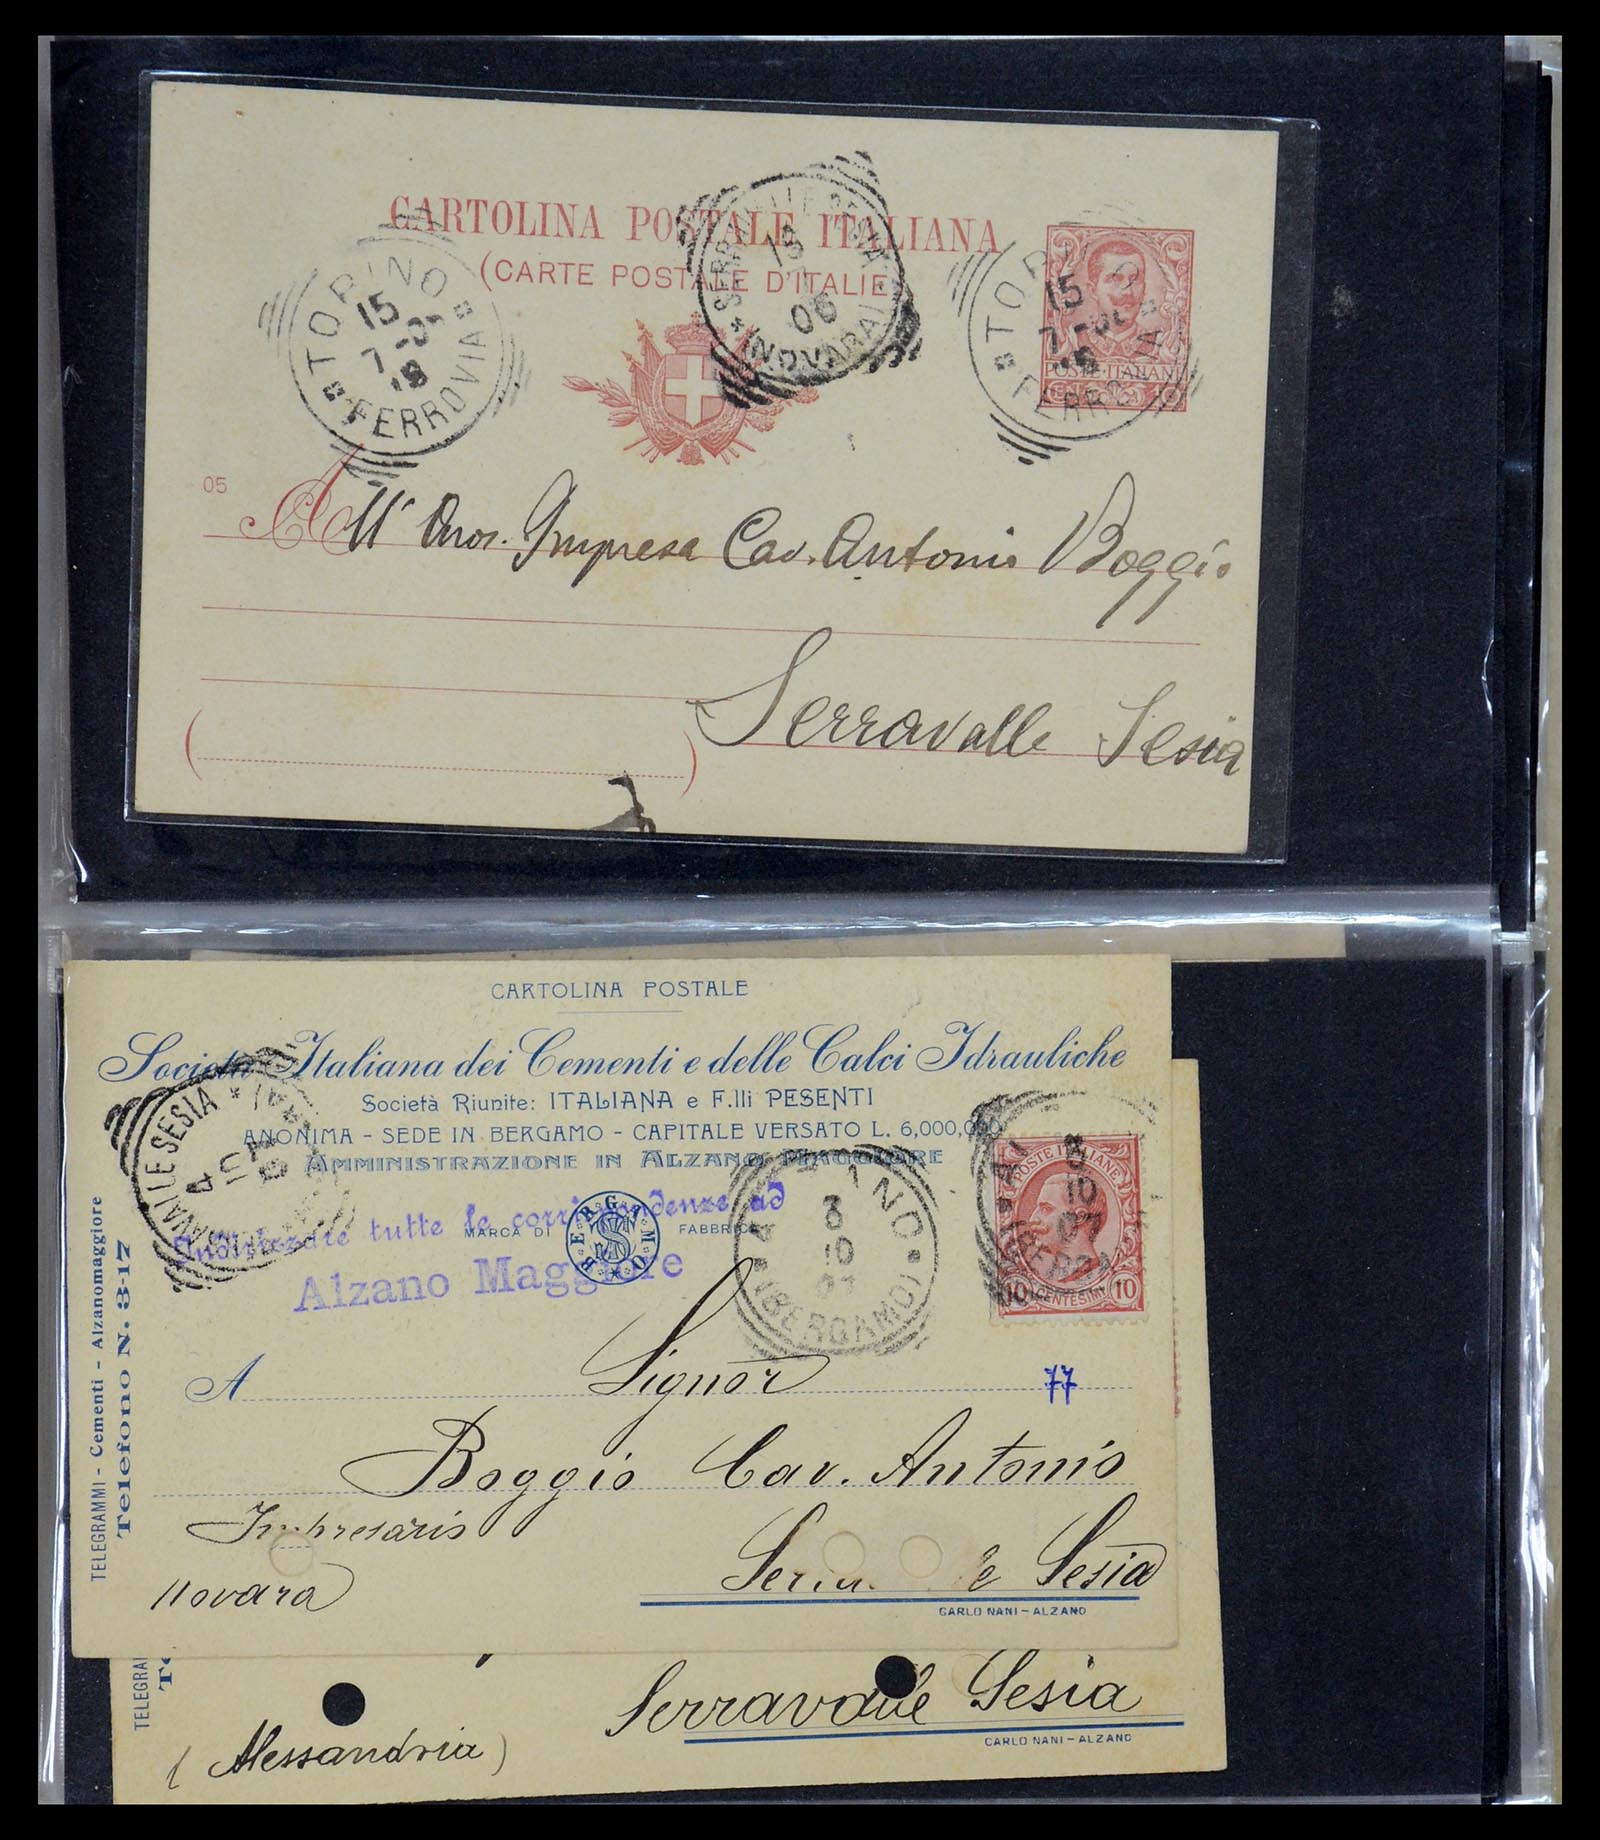 CARTOLINA POSTALE ITALIANA
(CARTE POSTALE D'ITALIE)
TORINO
15
7
FERROVIA
SERRAVALLE SESIA
06
(NOVARA)
TORINO
15
7
FERROVIA
POSTE ITALIANE
05
All' Impresa Cav. Antonio Boggio
Serravalle Sesia
CARTOLINA POSTALE
Società Italiana dei Cementi e delle Calci Idrauliche
Società Riunite: ITALIANA e F.lli PESENTI
ANONIMA - SEDE IN BERGAMO - CAPITALE VERSATO L. 6,000,000
AMMINISTRAZIONE IN ALZANO MAGGIORE
Indirizzare tutte le corrispondenze ad
Alzano Maggiore
MARCA DI FABBRICA
BERGAMO
SERRAVALLE SESIA
4
ALZANO
3
10
07
(BERGAMO)
3
10
07
(BERGAMO)
POSTE ITALIANE
10 CENTESIMI 10
TELEGRAMMI - Cementi - Alzanomaggiore
Telefono N. 3-17
A Signor
77
Boggio Cav. Antonio
Impresario
Serravalle Sesia
Novara
CARLO NANI - ALZANO
TELEGRA
Te
Serravalle Sesia
(Alessandria)
CARLO NANI - ALZANO